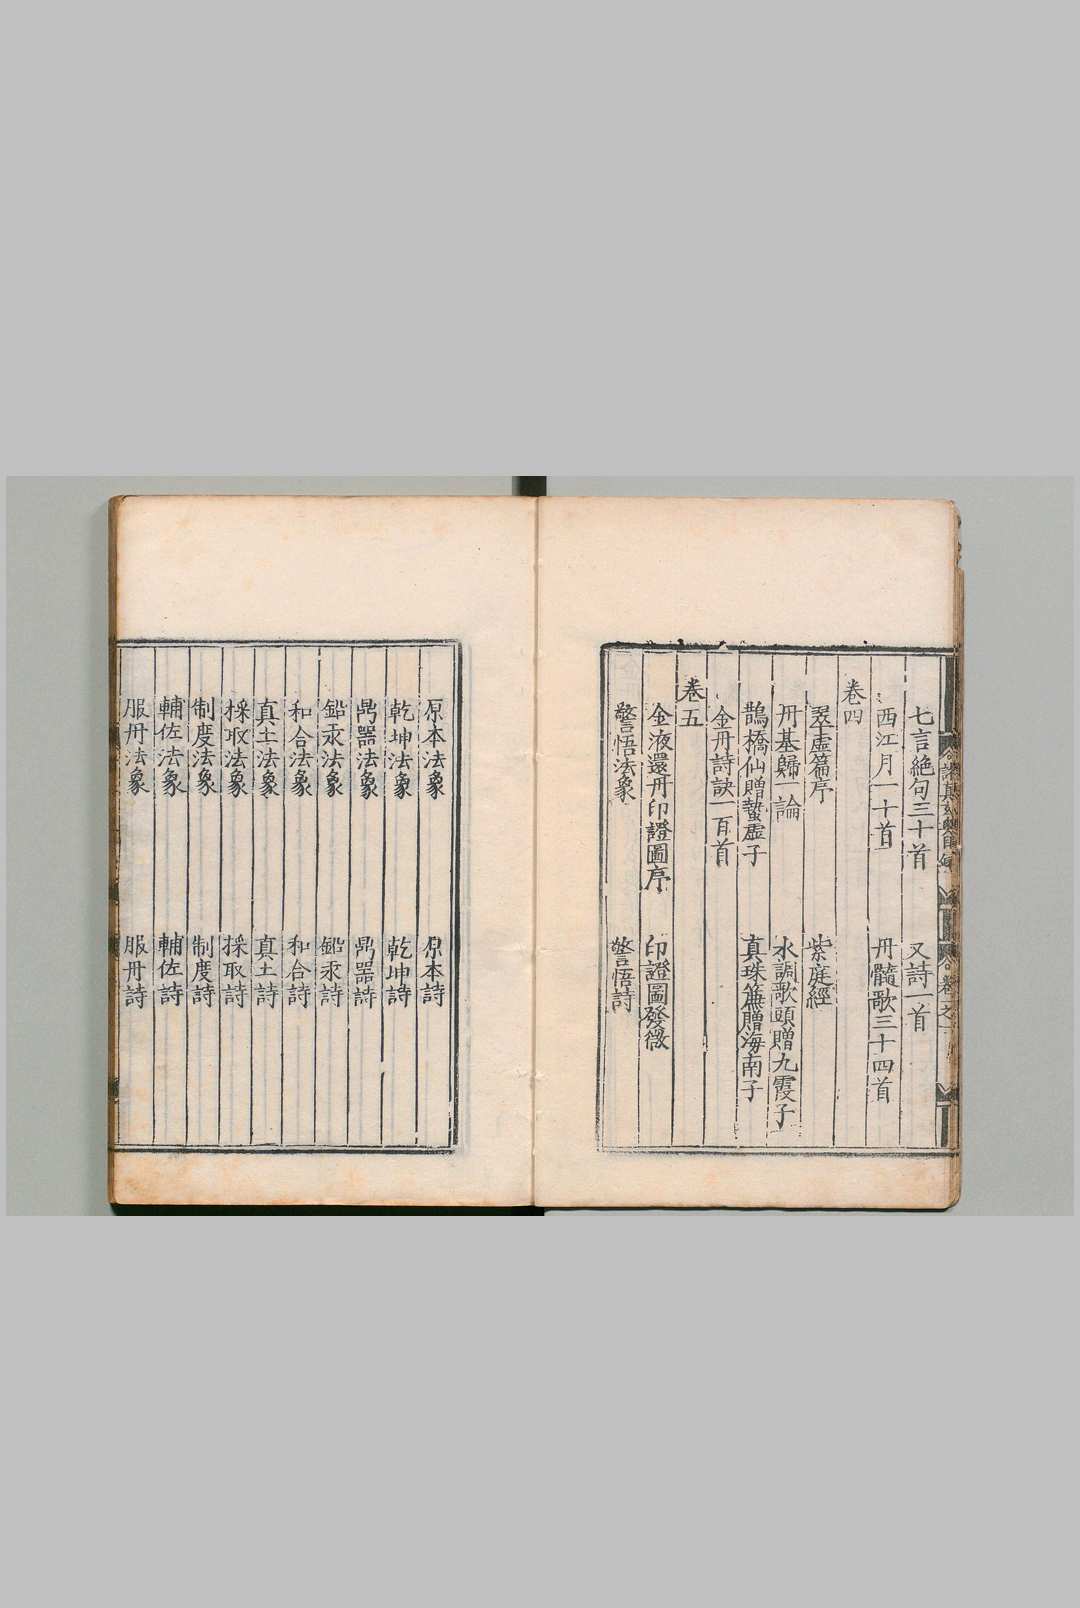 七言絶句三十首 又詩一首
西江月一十首 丹髓歌三十四首
卷四
翠虛篇序 紫庭經
丹基歸一論 水調歌頭贈九霞子
鵲橋仙贈蟄虛子 真珠簾贈海南子
金丹詩訣一百首
卷五
金液還丹印證圖序 印證圖發微
警悟法象 警悟詩
原本法象 原本詩
乾坤法象 乾坤詩
鼎器法象 鼎器詩
鉛汞法象 鉛汞詩
和合法象 和合詩
真土法象 真土詩
採取法象 採取詩
制度法象 制度詩
輔佐法象 輔佐詩
服丹法象 服丹詩